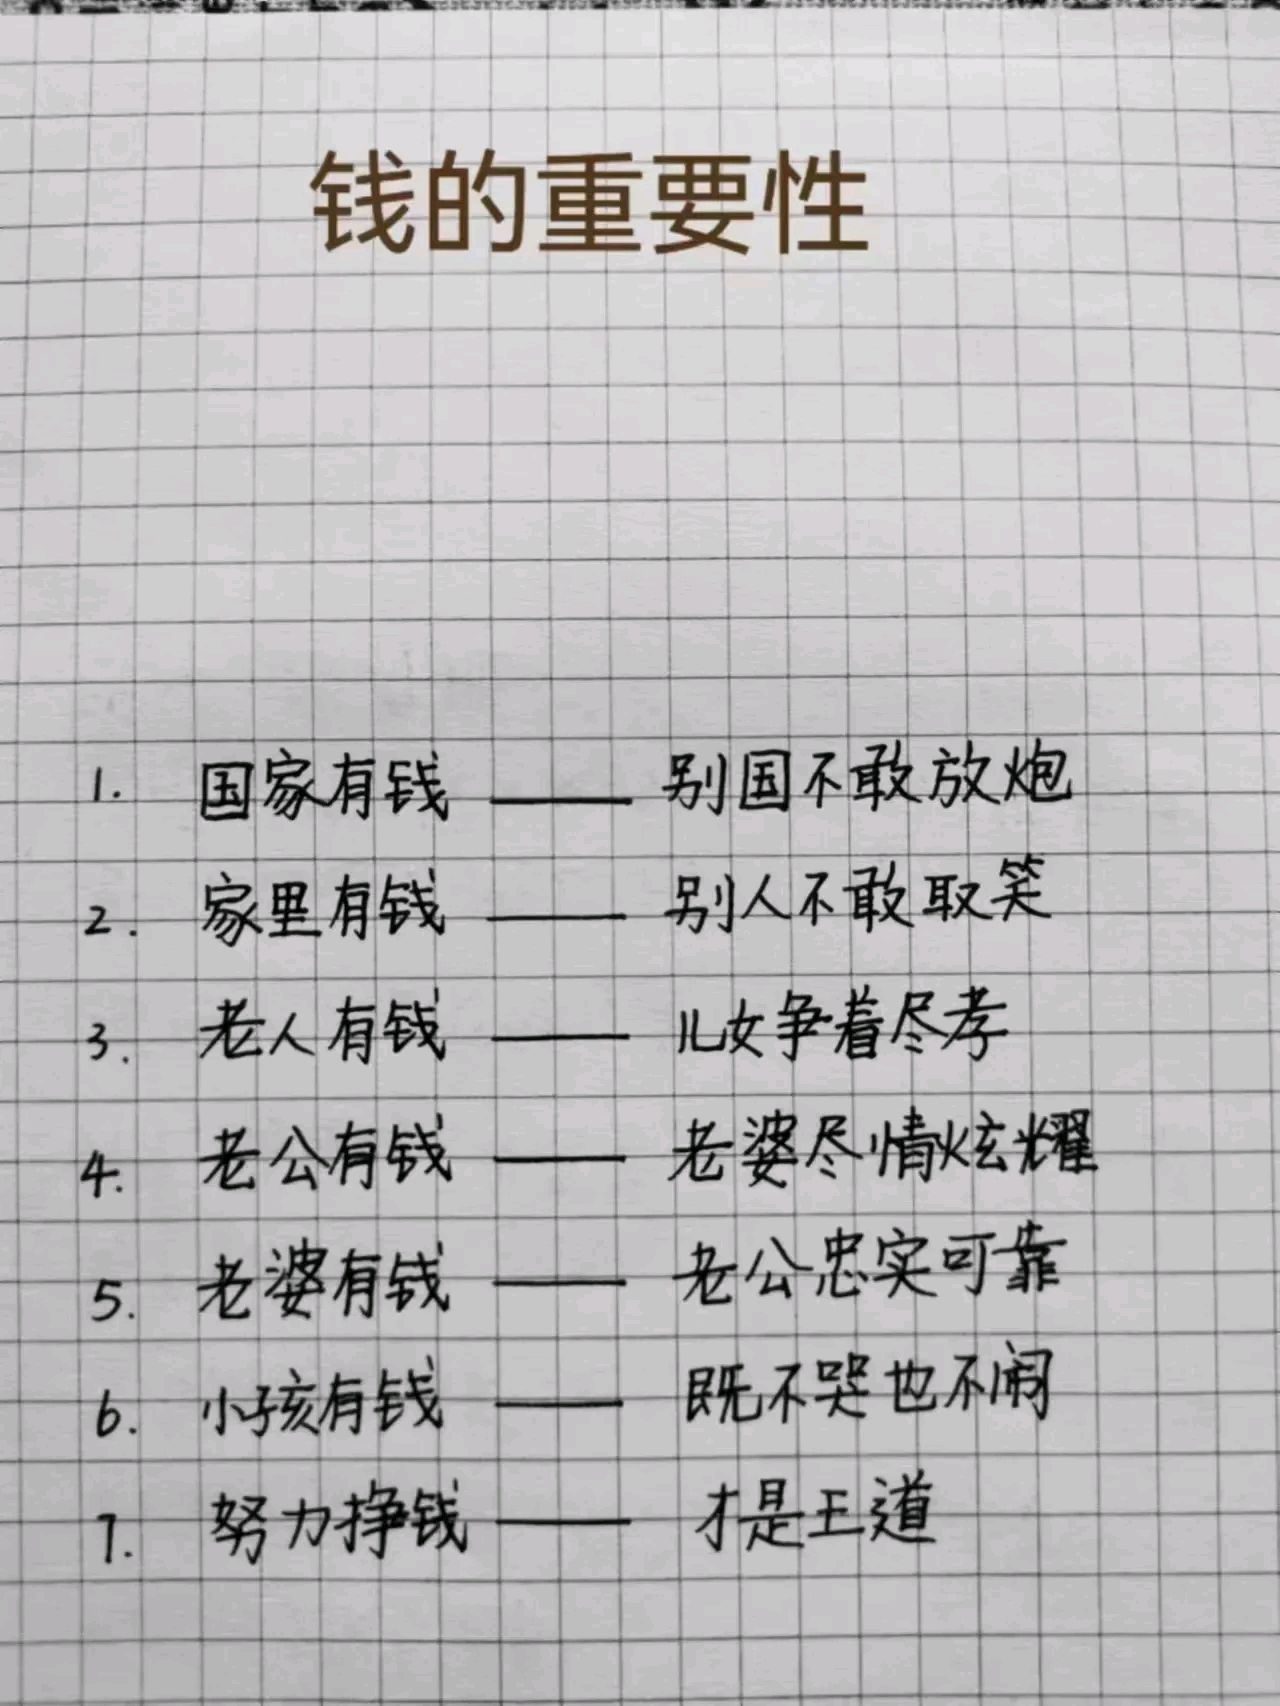 钱的重要性
1. 国家有钱 —— 别国不敢放炮
2. 家里有钱 —— 别人不敢取笑
3. 老人有钱 —— 儿女争着尽孝
4. 老公有钱 —— 老婆尽情炫耀
5. 老婆有钱 —— 老公忠实可靠
6. 小孩有钱 —— 既不哭也不闹
7. 努力挣钱 —— 才是王道